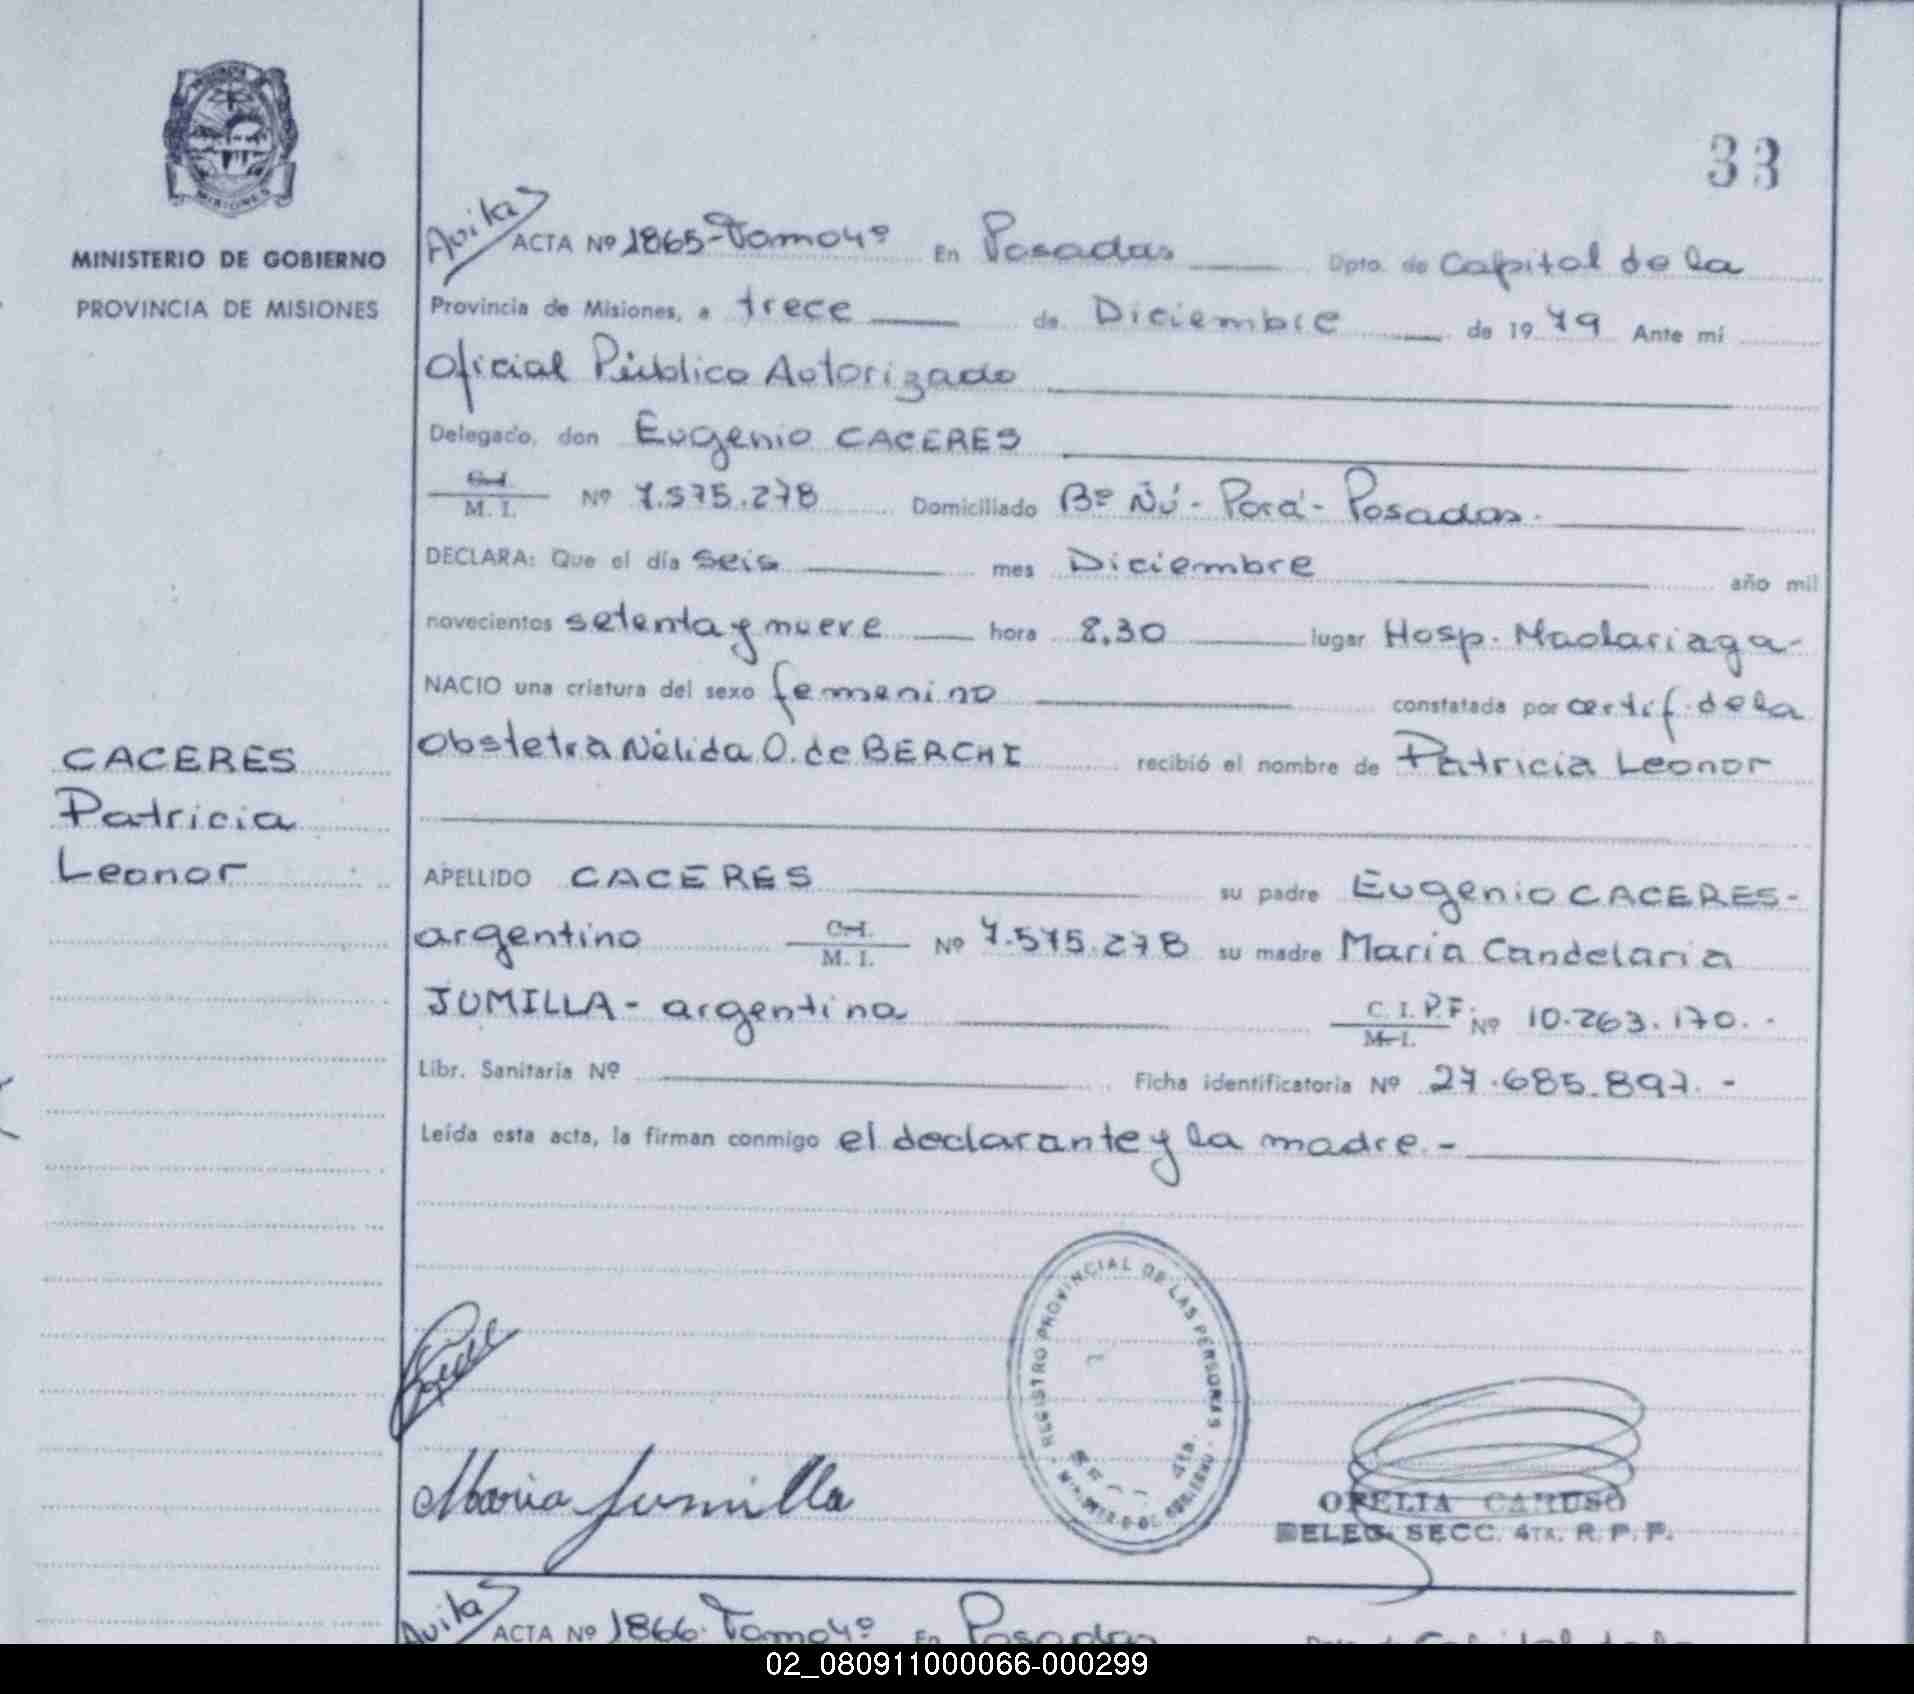 33
MINISTERIO DE GOBIERNO
PROVINCIA DE MISIONES
CACERES
Patricia
Leonor
ACTA Nº 1865-Tomo 4º En Posadas Dpto. de Capital de la
Provincia de Misiones, a trece de Diciembre de 1979 Ante mí
Oficial Público Autorizado
Delegado, don Eugenio CACERES
C.I. M. I. Nº 7.575.278 Domiciliado Bº Ñú-Porá- Posadas.
DECLARA: Que el día seis mes Diciembre año mil
novecientos setenta y nueve hora 8,30 lugar Hosp. Madariaga-
NACIO una criatura del sexo femenino constatada por certif. de la
Obstetra Nélida O. de BERCHI recibió el nombre de Patricia Leonor
APELLIDO CACERES su padre Eugenio CACERES-
argentino C.I. M. I. Nº 7.575.278 su madre María Candelaria
JUMILLA - argentina C. I. P.F. M.I. Nº 10.263.170.-
Libr. Sanitaria Nº Ficha identificatoria Nº 27.685.897.-
Leída esta acta, la firman conmigo el declarante y la madre.-
REGISTRO PROVINCIAL DE LAS PERSONAS
4ta.
Maria Jumilla
OFELIA CARUSO
DELEG. SECC. 4TA. R. P. P.
ACTA Nº 1866-Tomo 4º En Posadas
02_080911000066-000299